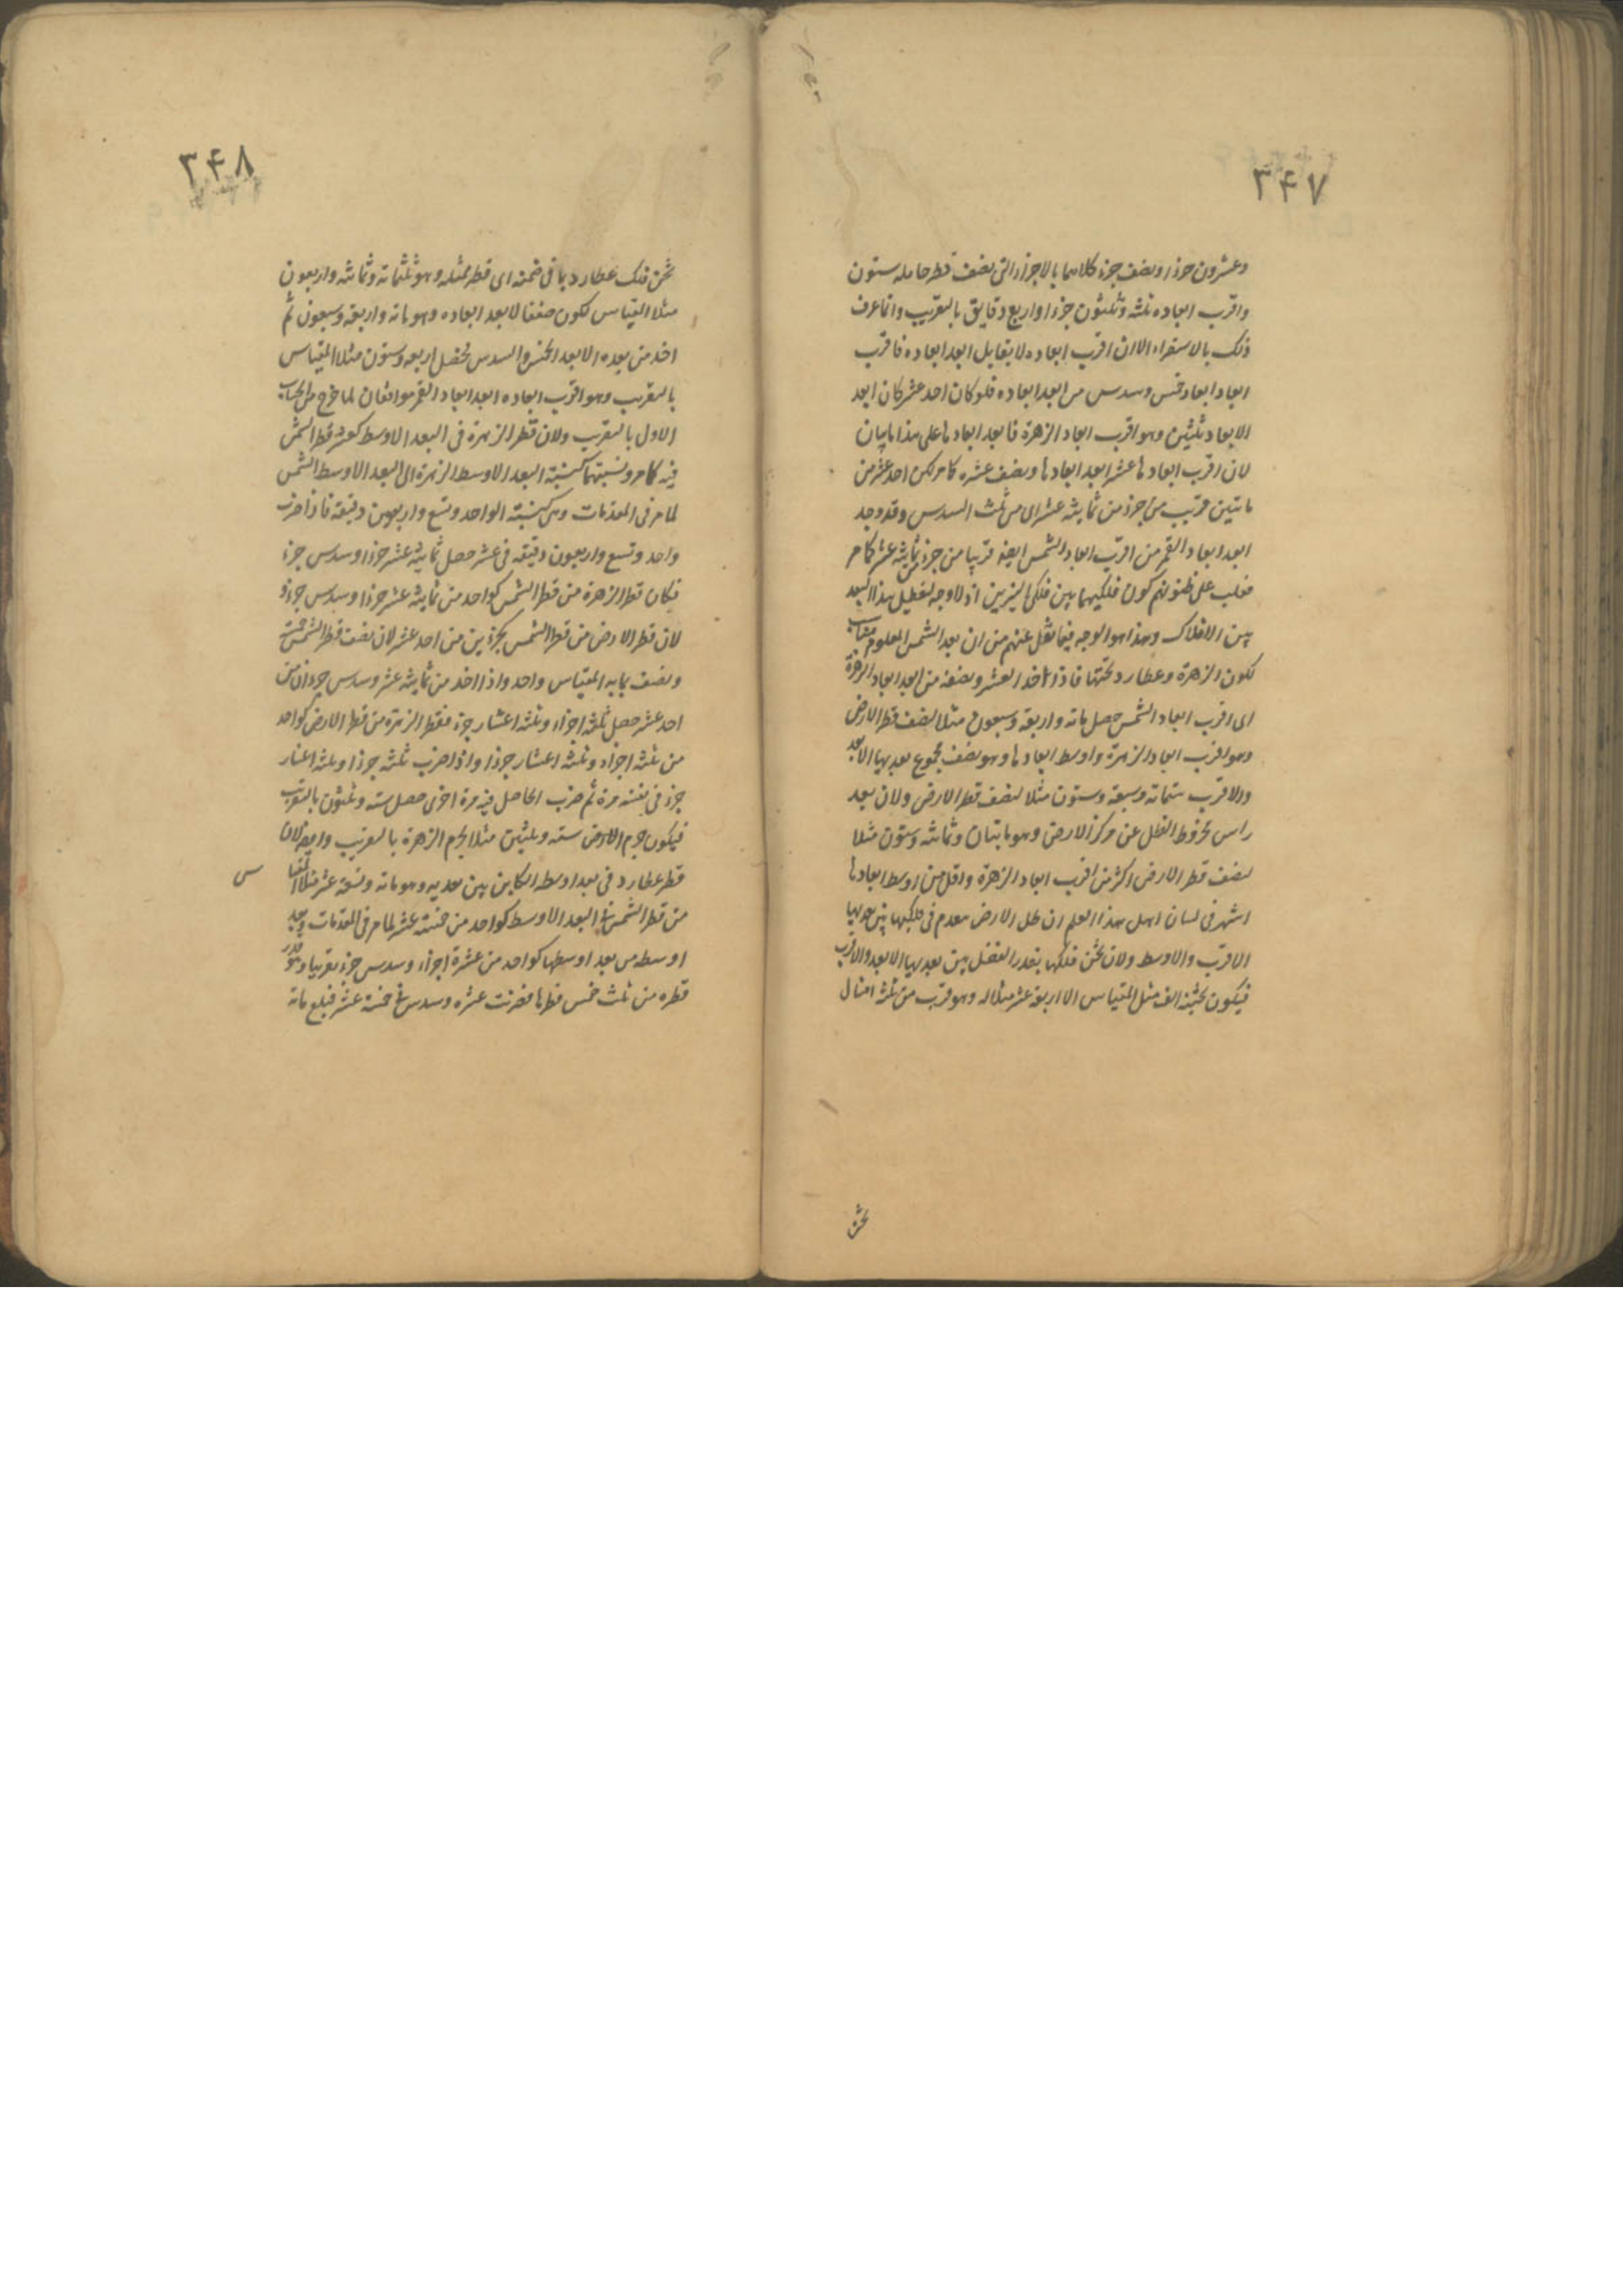 ٣۴٧
وعشرون جزءا ونصف جزء كلاهما بالاجزاء التى نصف قطر حامله ستون
واقرب ابعاده ثلثة وثلثون جزءا واربع دقايق بالتقريب وانما عرف
ذلك بالاستقراء الا ان اقرب ابعاده لا يقابل ابعد ابعاده فاقرب
ابعاد ابعاد خمس وسدس من ابعد ابعاده فلو كان احد عشر كان ابعد
الابعاد ثلثين وهو اقرب ابعاد الزهرة فابعد ابعادها على هذا ماتيان
لان اقرب ابعادها عشر ابعد ابعادها ونصف عشره كما مر لكن احد عشر من
ماتين قريب من جزء من ثمانية عشر اى من ثلث السدس وقد وجد
ابعد ابعاد القمر من اقرب ابعاد الشمس ايضا قريبا من جزء من ثمانية عشر كما مر
فغلب على ظنونهم كون فلكيهما بين فلكى النيرين اذ لا وجه لتعطيل هذا البعد
بين الافلاك وهذا هو الوجه فيما نقل عنهم من ان بعد الشمس المعلوم مناسب
لكون الزهرة وعطارد تحتها فاذا اخذ العشر ونصفه من ابعد ابعاد الزهرة
اى اقرب ابعاد الشمس حصل مائة واربعة وسبعون مثلا لنصف قطر الارض
وهو اقرب ابعاد الزهرة واوسط ابعادها وهو نصف مجموع بعديها الابعد
والاقرب ستمائة وسبعة وستون مثلا لنصف قطر الارض ولان بعد
راس مخروط الظل عن مركز الارض وهو مايتان وثمانية وستون مثلا
لنصف قطر الارض اكثر من اقرب ابعاد الزهرة واقل من اوسط ابعادها
اشتهر فى لسان اهل هذا العلم ان ظل الارض ينعدم فى فلكها بين بعديها
الاقرب والاوسط ولان ثخن فلكها بقدر الفضل بين بعديها الابعد والاقرب
فيكون ثخنه الف مثل المقياس الا اربعة عشر مثلا له وهو قرب من ثلثة امثال
ثخن
٣۴٨
ثخن فلك عطارد بما فى ضمنه اى قطر ممثله وهو ثلثمائة وثمانية واربعون
مثلا المقياس لكون ضعفا لابعد ابعاده وهو مائة واربعة وسبعون ثم
اخذ من بعده الابعد الخمس والسدس تحصل اربعة وستون مثلا المقياس
بالتقريب وهو اقرب ابعاده ابعد ابعاد القمر موافقان لما خرج من الحساب
الاول بالتقريب ولان قطر الزهرة فى البعد الاوسط كعشر قطر الشمس
فيه كما مر ونسبتهما كنسبة البعد الاوسط الزهرة الى البعد الاوسط الشمس
لما مر فى المقدمات وهى كنسبة الواحد وتسع واربعين دقيقة فاذا ضرب
واحد وتسع واربعون دقيقة فى عشر حصل ثمانية عشر جزءا وسدس جزء
فكان قطر الزهرة من قطر الشمس كواحد من ثمانية عشر جزءا وسدس جزء و
لان قطر الارض من قطر الشمس كجزئين من احد عشر لان نصف قطر الشمس خمسة
ونصف بما به المقياس واحد واذا اخذ من ثمانية عشر وسدس جزءان من
احد عشر حصل ثلثة اجزاء وثلثة اعشار جزء فقطر الزهرة من قطر الارض كواحد
من ثلثة اجزاء وثلثة اعشار جزءا واذا ضرب ثلثة جزءا وثلثة اعشار
جزء فى نفسه مرة ثم ضرب الحاصل فيه مرة اخرى حصل ستة وثلثون بالتقريب
فيكون جرم الارض ستة وثلثين مثلا لجرم الزهرة بالتقريب وايضا لان
قطر عطارد فى بعد اوسطه الكاين بين بعديه وهو مائة وتسعة عشر مثلا المقياس
من قطر الشمس فى البعد الاوسط كواحد من خمسة عشر لما مر فى المقدمات وبعد
اوسطه من بعد اوسطها كواحد من عشرة اجزاء وسدس جزء تقريبا وهو قدر
قطره من ثلث خمس قطرها فضربت عشرة وسدس فى خمسة عشر فبلغ مائة